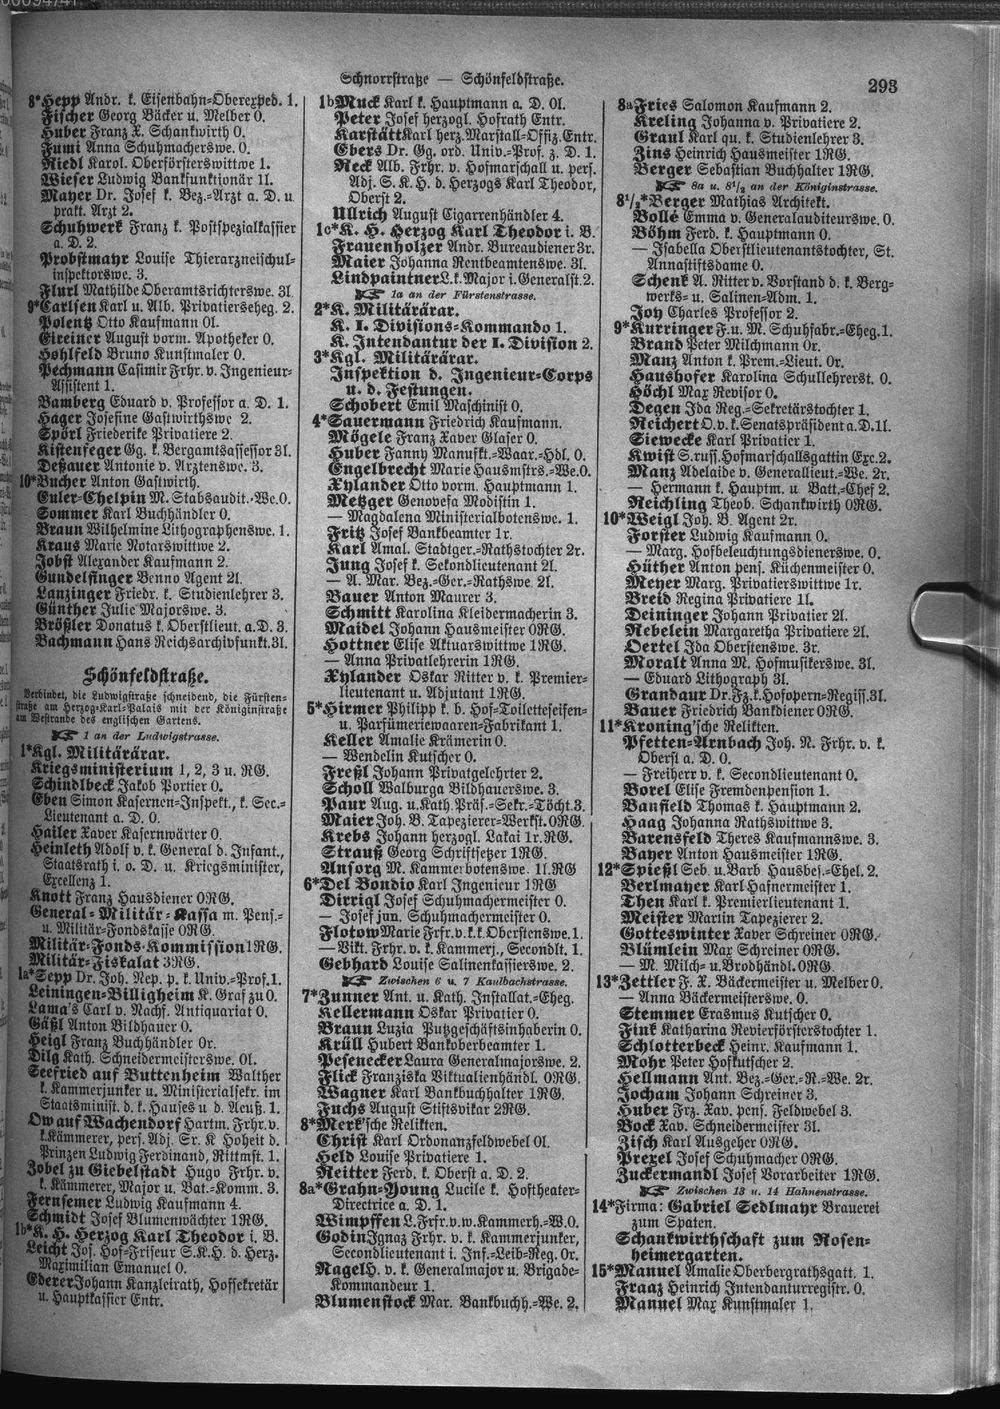 Schnorrstraße — Schönfeldstraße.
293
8*Hepp Andr. k. Eisenbahn-Oberexped. 1.
Fischer Georg Bäcker u. Melber 0.
Huber Franz X. Schankwirth 0.
Fumi Anna Schuhmacherswe. 0.
Riedl Karol. Oberförsterswittwe 1.
Wieser Ludwig Bankfunktionär 1l.
Mayer Dr. Josef k. Bez.-Arzt a. D. u.
prakt. Arzt 2.
Schuhwerk Franz k. Postspezialkassier
a. D. 2.
Probstmayr Louise Thierarzneischul-
inspektorswe. 3.
Flurl Mathilde Oberamtsrichterswe. 3l.
9*Carlsen Karl u. Alb. Privatierseheg. 2.
Polentz Otto Kaufmann 0l.
Greiner August vorm. Apotheker 0.
Hohlfeld Bruno Kunstmaler 0.
Pechmann Casimir Frhr. v. Ingenieur-
Assistent 1.
Bamberg Eduard v. Professor a. D. 1.
Hager Josefine Gastwirthswe 2.
Spörl Friederike Privatiere 2.
Kistenfeger Gg. k. Bergamtsassessor 3l.
Deßauer Antonie v. Arztenswe. 3.
10*Bucher Anton Gastwirth.
Euler-Chelpin M. Stabsaudit.-We. 0.
Sommer Karl Buchhändler 0.
Braun Wilhelmine Lithographenswe. 1.
Kraus Marie Notarswittwe 2.
Jobst Alexander Kaufmann 2.
Gundelfinger Benno Agent 2l.
Lanzinger Friedr. k. Studienlehrer 3.
Günther Julie Majorswe. 3.
Brößler Donatus k. Oberstlieut. a. D. 3.
Bachmann Hans Reichsarchivfunkt. 3l.
Schönfeldstraße.
Verbindet, die Ludwigstraße schneidend, die Fürsten-
straße am Herzog-Karl-Palais mit der Königinstraße
am Westrande des englischen Gartens.
1 an der Ludwigstrasse.
1*Kgl. Militärärar.
Kriegsministerium 1, 2, 3 u. RG.
Schindlbeck Jakob Portier 0.
Eben Simon Kasernen-Inspekt., k. Sec.-
Lieutenant a. D. 0.
Hailer Xaver Kasernwärter 0.
Heinleth Adolf v. k. General d. Infant.,
Staatsrath i. o. D. u. Kriegsminister,
Excellenz 1.
Knott Franz Hausdiener 0RG.
General-Militär-Kassa m. Pens.-
u. Militär-Fondskasse 0RG.
Militär-Fonds-Kommission 1RG.
Militär-Fiskalat 3RG.
1a*Sepp Dr. Joh. Nep. p. k. Univ.-Prof. 1.
Leiningen-Billigheim K. Graf zu 0.
Lama's Carl v. Nachf. Antiquariat 0.
Gäßl Anton Bildhauer 0.
Heigl Franz Buchhändler 0r.
Dilg Kath. Schneidermeisterswe. 0l.
Seefried auf Buttenheim Walther
k. Kammerjunker u. Ministerialsekr. im
Staatsminist. d. k. Hauses u. d. Aeuß. 1.
Ow auf Wachendorf Hartm. Frhr. v.
k. Kämmerer, pers. Adj. Sr. K Hoheit d.
Prinzen Ludwig Ferdinand, Rittmst. 1.
Zobel zu Giebelstadt Hugo Frhr. v.
k. Kämmerer, Major u. Bat.-Komm. 3.
Fernsemer Ludwig Kaufmann 4.
Schmidt Josef Blumenwächter 1RG.
1b*K. H. Herzog Karl Theodor i. B.
Leicht Jos. Hof-Friseur S. K. H. d. Herz.
Maximilian Emanuel 0.
Ederer Johann Kanzleirath, Hofsekretär
u. Hauptkassier Entr.
1b Muck Karl k. Hauptmann a. D. 0l.
Peter Josef herzogl. Hofrath Entr.
Karstätt Karl herz. Marstall-Offiz. Entr.
Ebers Dr. Gg. ord. Univ.-Prof. z. D. 1.
Reck Alb. Frhr. v. Hofmarschall u. pers.
Adj. S. K. H. d. Herzogs Karl Theodor,
Oberst 2.
Ullrich August Cigarrenhändler 4.
1c*K. H. Herzog Karl Theodor i. B.
Frauenholzer Andr. Bureaudiener 3r.
Maier Johanna Rentbeamtenswe. 3l.
Lindpaintner L. k. Major i. Generalst. 2.
1a an der Fürstenstrasse.
2*K. Militärärar.
K. I. Divisions-Kommando 1.
K. Intendantur der I. Division 2.
3*Kgl. Militärärar.
Inspektion d. Ingenieur-Corps
u. d. Festungen.
Schobert Emil Maschinist 0.
4*Sauermann Friedrich Kaufmann.
Mögele Franz Xaver Glaser 0.
Huber Fanny Manufkt.-Waar.-Hdl. 0.
Engelbrecht Marie Hausmstrs.-We. 0.
Xylander Otto vorm. Hauptmann 1.
Metzger Genovefa Modistin 1.
— Magdalena Ministerialbotenswe. 1.
Fritz Josef Bankbeamter 1r.
Karl Amal. Stadtger.-Rathstochter 2r.
Jung Josef k. Sekondlieutenant 2l.
— A. Mar. Bez.-Ger.-Rathswe. 2l.
Bauer Anton Maurer 3.
Schmitt Karolina Kleidermacherin 3.
Maidel Johann Hausmeister 0RG.
Hottner Elise Aktuarswittwe 1RG.
— Anna Privatlehrerin 1RG.
Xylander Oskar Ritter v. k. Premier-
lieutenant u. Adjutant 1RG.
5*Hirmer Philipp k. b. Hof-Toiletteseifen-
u. Parfümeriewaaren-Fabrikant 1.
Keller Amalie Krämerin 0.
— Wendelin Kutscher 0.
Freßl Johann Privatgelehrter 2.
Scholl Walburga Bildhauerswe. 3.
Paur Aug. u. Kath. Präs.-Sekr.-Töcht. 3.
Maier Joh. B. Tapezierer-Werkst. 0RG.
Krebs Johann herzogl. Lakai 1r. RG.
Strauß Georg Schriftsetzer 1RG.
Ansorg M. Kammerbotenswe. 1l. RG
6*Del Bondio Karl Ingenieur 1RG
Dirrigl Josef Schuhmachermeister 0.
— Josef jun. Schuhmachermeister 0.
Flotow Marie Frfr. v. k. k. Oberstenswe. 1.
— Vikt. Frhr. v. k. Kammerj., Secondlt. 1.
Gebhard Louise Salinenkassierswe. 2.
Zwischen 6 u. 7 Kaulbachstrasse.
7*Zunner Ant. u. Kath. Installat.-Eheg.
Kellermann Oskar Privatier 0.
Braun Luzia Putzgeschäftsinhaberin 0.
Krüll Hubert Bankoberbeamter 1.
Pesenecker Laura Generalmajorswe. 2.
Flick Franziska Viktualienhändl. 0RG.
Wagner Karl Bankbuchhalter 1RG.
Fuchs August Stiftsvikar 2RG.
8*Merk'sche Relikten.
Christ Karl Ordonanzfeldwebel 0l.
Held Louise Privatiere 1.
Reitter Ferd. k. Oberst a. D. 2.
8a*Grahn-Young Lucile k. Hoftheater-
Directrice a. D. 1.
Wimpffen L. Frfr. v. w. Kammerh.-W. 0.
Godin Ignaz Frhr. v. k. Kammerjunker,
Secondlieutenant i. Inf.-Leib-Reg. 0r.
Nagel H. v. k. Generalmajor u. Brigade-
Kommandeur 1.
Blumenstock Mar. Bankbuchh.-We. 2.
8a Fries Salomon Kaufmann 2.
Kreling Johanna v. Privatiere 2.
Graul Karl qu. k. Studienlehrer 3.
Zins Heinrich Hausmeister 1RG.
Berger Sebastian Buchhalter 1RG.
8a u. 8½ an der Königinstrasse.
8½*Berger Mathias Architekt.
Bollé Emma v. Generalauditeurswe. 0.
Böhm Ferd. k. Hauptmann 0.
— Isabella Oberstlieutenantstochter, St.
Annastiftsdame 0.
Schenk A. Ritter v. Vorstand d. k. Berg-
werks- u. Salinen-Adm. 1.
Joy Charles Professor 2.
9*Kurringer F. u. M. Schuhfabr.-Eheg. 1.
Brand Peter Milchmann 0r.
Manz Anton k. Prem.-Lieut. 0r.
Haushofer Karolina Schullehrerst. 0.
Höchl Max Revisor 0.
Degen Ida Reg.-Sekretärstochter 1.
Reichert O. v. k. Senatspräsident a. D. 1l.
Siewecke Karl Privatier 1.
Kwist S. russ. Hofmarschallsgattin Exc. 2.
Manz Adelaide v. Generallieut.-We. 2r.
— Hermann k. Hauptm. u. Batt.-Chef 2.
Reichling Theob. Schankwirth 0RG.
10*Weigl Joh. B. Agent 2r.
Forster Ludwig Kaufmann 0.
— Marg. Hofbeleuchtungsdienerswe. 0.
Hüther Anton pens. Küchenmeister 0.
Meyer Marg. Privatierswittwe 1r.
Breid Regina Privatiere 1l.
Deininger Johann Privatier 2l.
Nebelein Margaretha Privatiere 2l.
Oertel Ida Oberstenswe. 3r.
Moralt Anna M. Hofmusikerswe. 3l.
— Eduard Lithograph 3l.
Grandaur Dr. Fz. k. Hofopern-Regiss. 3l.
Bauer Friedrich Bankdiener 0RG.
11*Kroning'sche Relikten.
Pfetten-Arnbach Joh. N. Frhr. v. k.
Oberst a. D. 0.
— Freiherr v. k. Secondlieutenant 0.
Borel Elise Fremdenpension 1.
Banfield Thomas k. Hauptmann 2.
Haag Johanna Rathswittwe 3.
Barensfeld Theres Kaufmannswe. 3.
Bayer Anton Hausmeister 1RG.
12*Spießl Seb. u. Barb. Hausbes.-Ehel. 2.
Berlmayer Karl Hafnermeister 1.
Then Karl k. Premierlieutenant 1.
Meister Martin Tapezierer 2.
Gotteswinter Xaver Schreiner 0RG.
Blümlein Max Schreiner 0RG.
— M. Milch- u. Brodhändl. 0RG.
13*Zettler F. X. Bäckermeister u. Melber 0.
— Anna Bäckermeisterswe. 0.
Stemmer Erasmus Kutscher 0.
Fink Katharina Revierförsterstochter 1.
Schlotterbeck Heinr. Kaufmann 1.
Mohr Peter Hofkutscher 2.
Hellmann Ant. Bez.-Ger.-R.-We. 2r.
Jocham Johann Schreiner 3.
Huber Frz. Xav. pens. Feldwebel 3.
Bock Xav. Schneidermeister 3l.
Zisch Karl Ausgeher 0RG.
Prexel Josef Schuhmacher 0RG.
Zuckermandl Josef Vorarbeiter 1RG.
Zwischen 13 u. 14 Hahnenstrasse.
14*Firma: Gabriel Sedlmayr Brauerei
zum Spaten.
Schankwirthschaft zum Rosen-
heimergarten.
15*Manuel Amalie Oberbergrathsgatt. 1.
Fraaz Heinrich Intendanturregistr. 0.
Manuel Max Kunstmaler 1.